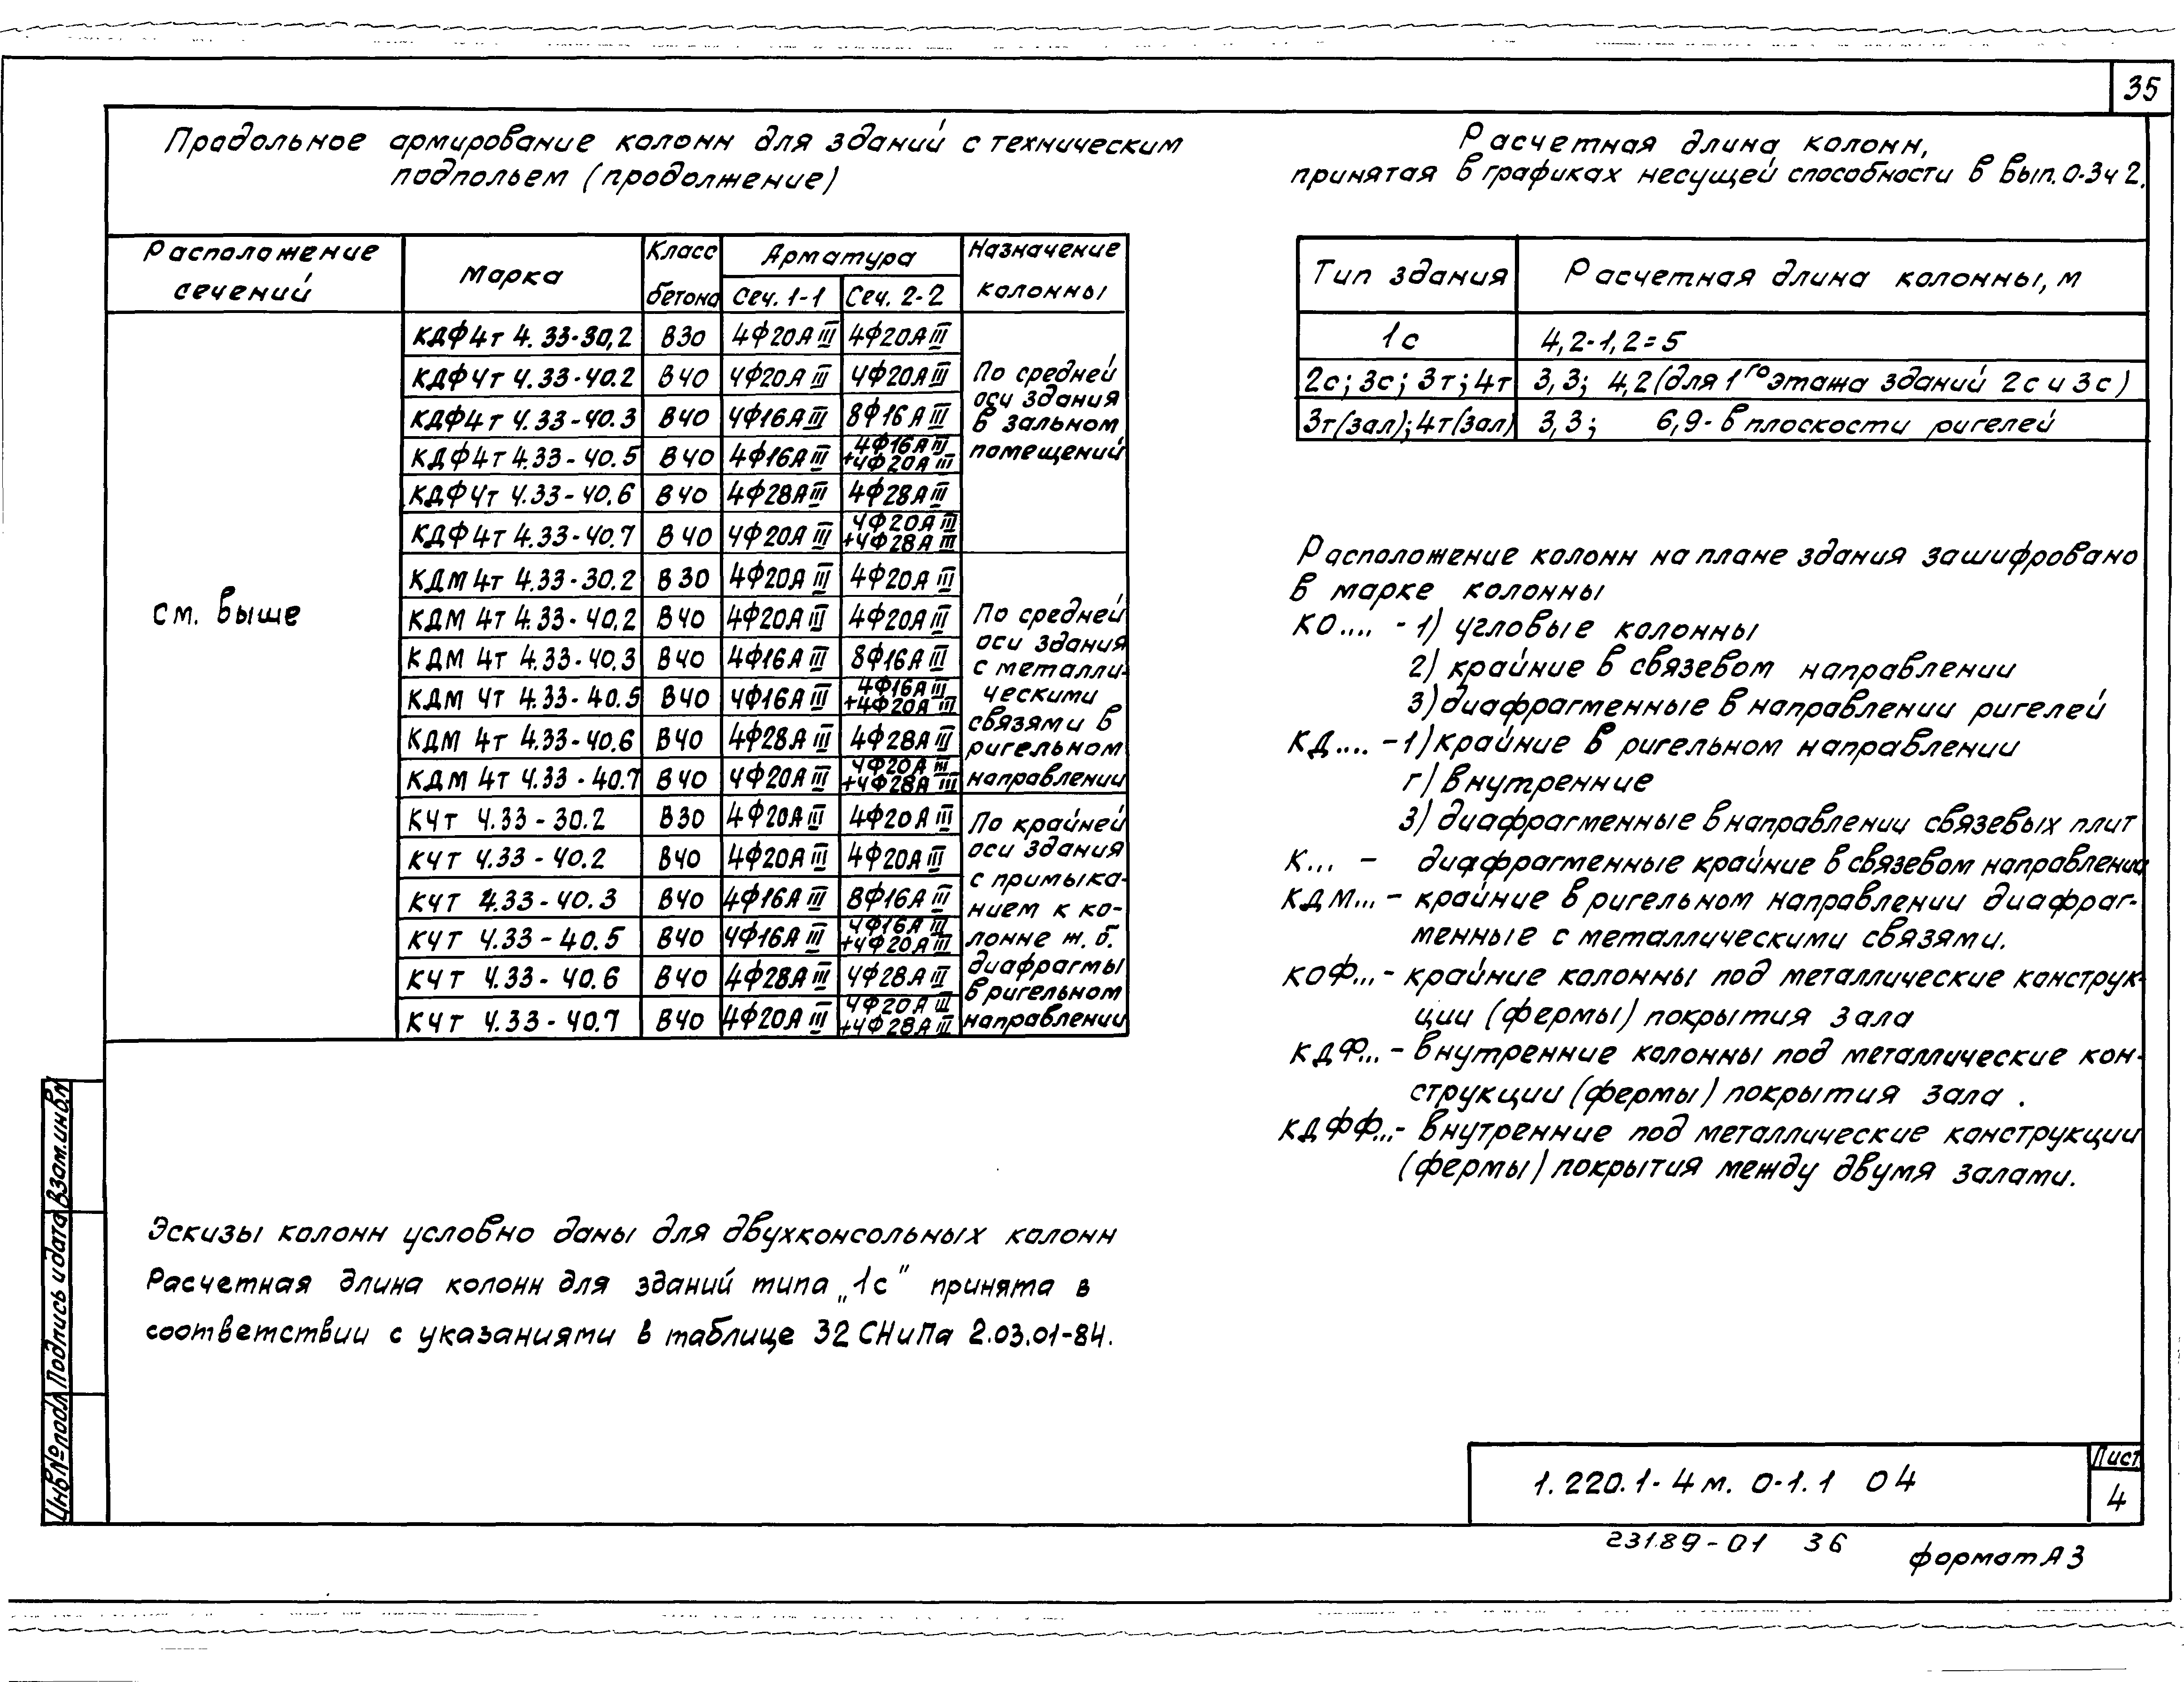 35
Продольное армирование колонн для зданий с техническим
подпольем (продолжение)
Расположение сечений | Марка | Класс бетона | Арматура | Назначение колонны
Сеч. 1-1 | Сеч. 2-2
см. выше
КДФ4т 4.33-30,2 | В30 | 4Ф20АIII | 4Ф20АIII
КДФ4т 4.33-40.2 | В40 | 4Ф20АIII | 4Ф20АIII
КДФ4т 4.33-40.3 | В40 | 4Ф16АIII | 8Ф16АIII
КДФ4т 4.33-40.5 | В40 | 4Ф16АIII | 4Ф16АIII +4Ф20АIII
КДФ4т 4.33-40.6 | В40 | 4Ф28АIII | 4Ф28АIII
КДФ4т 4.33-40.7 | В40 | 4Ф20АIII | 4Ф20АIII +4Ф28АIII
По средней
оси здания
в зальном
помещений
КДМ 4т 4.33-30.2 | В30 | 4Ф20АIII | 4Ф20АIII
КДМ 4т 4.33-40,2 | В40 | 4Ф20АIII | 4Ф20АIII
КДМ 4т 4.33-40.3 | В40 | 4Ф16АIII | 8Ф16АIII
КДМ 4т 4.33-40.5 | В40 | 4Ф16АIII | 4Ф16АIII +4Ф20АIII
КДМ 4т 4.33-40.6 | В40 | 4Ф28АIII | 4Ф28АIII
КДМ 4т 4.33-40.7 | В40 | 4Ф20АIII | 4Ф20АIII +4Ф28АIII
По средней
оси здания
с металли-
ческими
связями в
ригельном
направлении
К4т 4.33-30.2 | В30 | 4Ф20АIII | 4Ф20АIII
К4т 4.33-40.2 | В40 | 4Ф20АIII | 4Ф20АIII
К4т 4.33-40.3 | В40 | 4Ф16АIII | 8Ф16АIII
К4т 4.33-40.5 | В40 | 4Ф16АIII | 4Ф16АIII +4Ф20АIII
К4т 4.33-40.6 | В40 | 4Ф28АIII | 4Ф28АIII
К4т 4.33-40.7 | В40 | 4Ф20АIII | 4Ф20АIII +4Ф28АIII
По крайней
оси здания
с примыка-
нием к ко-
лонне ж.б.
диафрагмы
в ригельном
направлении
Эскизы колонн условно даны для двухконсольных колонн
Расчетная длина колонн для зданий типа „1с" принята в
соответствии с указаниями в таблице 32 СНиПа 2.03.01-84.
Расчетная длина колонн,
принятая в графиках несущей способности в вып. 0-3ч2.
Тип здания | Расчетная длина колонны, м
1с | 4,2·1,2=5
2с; 3с; 3т; 4т | 3,3; 4,2 (для 1го этажа зданий 2с и 3с)
3т(зал); 4т(зал) | 3,3; 6,9-в плоскости ригелей
Расположение колонн на плане здания зашифровано
в марке колонны
КО.... - 1) угловые колонны
2) крайние в связевом направлении
3) диафрагменные в направлении ригелей
КД.... - 1) крайние в ригельном направлении
г) внутренние
3) диафрагменные в направлении связевых плит
К... - диафрагменные крайние в связевом направлении
КДМ... - крайние в ригельном направлении диафраг-
менные с металлическими связями.
КОФ... - крайние колонны под металлические конструк-
ции (фермы) покрытия зала
КДФ... - внутренние колонны под металлические кон-
струкции (фермы) покрытия зала.
КДФФ... - внутренние под металлические конструкции
(фермы) покрытия между двумя залами.
Инв№подл Подпись и дата Взам.инв.№
1.220.1-4м. 0-1.1 04
Лист
4
23189-01 36
формат А3